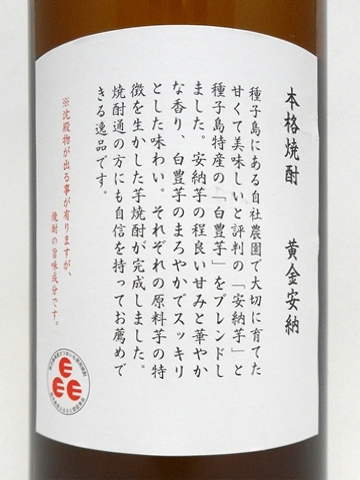 本格焼酎 黄金安納
種子島にある自社農園で大切に育てた
甘くて美味しいと評判の「安納芋」と
種子島特産の「白豊芋」をブレンドし
ました。安納芋の程良い甘みと華やか
な香り、白豊芋のまろやかでスッキリ
とした味わい。それぞれの原料芋の特
徴を生かした芋焼酎が完成しました。
焼酎通の方にも自信を持ってお薦めで
きる逸品です。
※沈殿物が出る事が有りますが、
焼酎の旨味成分です。